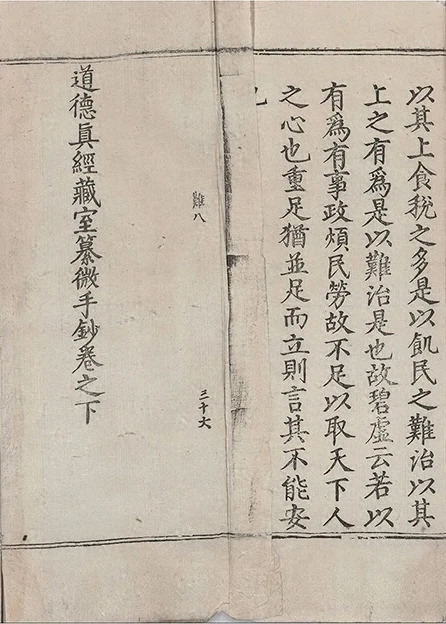 以其上食稅之多是以飢民之難治以其
上之有爲是以難治是也故碧虛云若以
有爲有事政煩民勞故不足以取天下人
之心也重足猶並足而立則言其不能安
難八
三十六
道德眞經藏室纂微手鈔卷之下